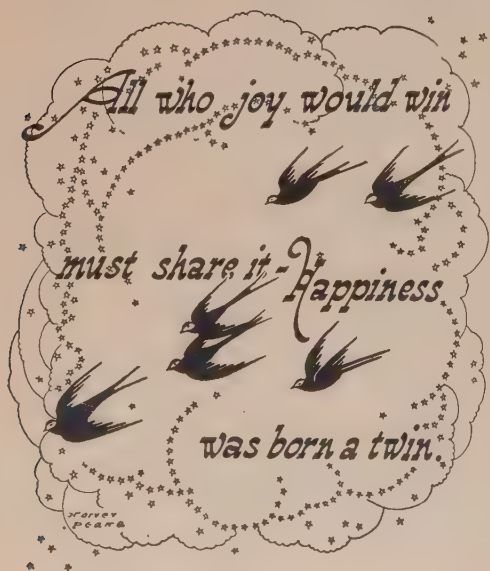 All who joy would win
must share it - Happiness
was born a twin.